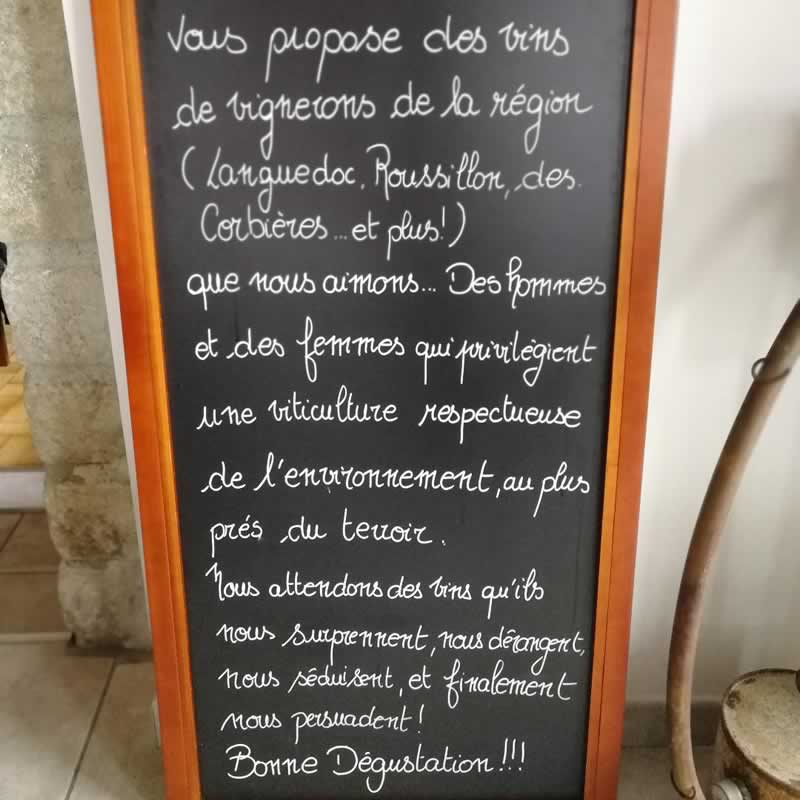 Vous propose des vins
de vignerons de la région
(Languedoc, Roussillon, des
Corbières...et plus!)
que nous aimons... Des hommes
et des femmes qui privilègient
une viticulture respectueuse
de l'environnement, au plus
prés du terroir.
Nous attendons des vins qu'ils
nous surprennent, nous dérangent,
nous séduisent, et finalement
nous persuadent!
Bonne Dégustation!!!